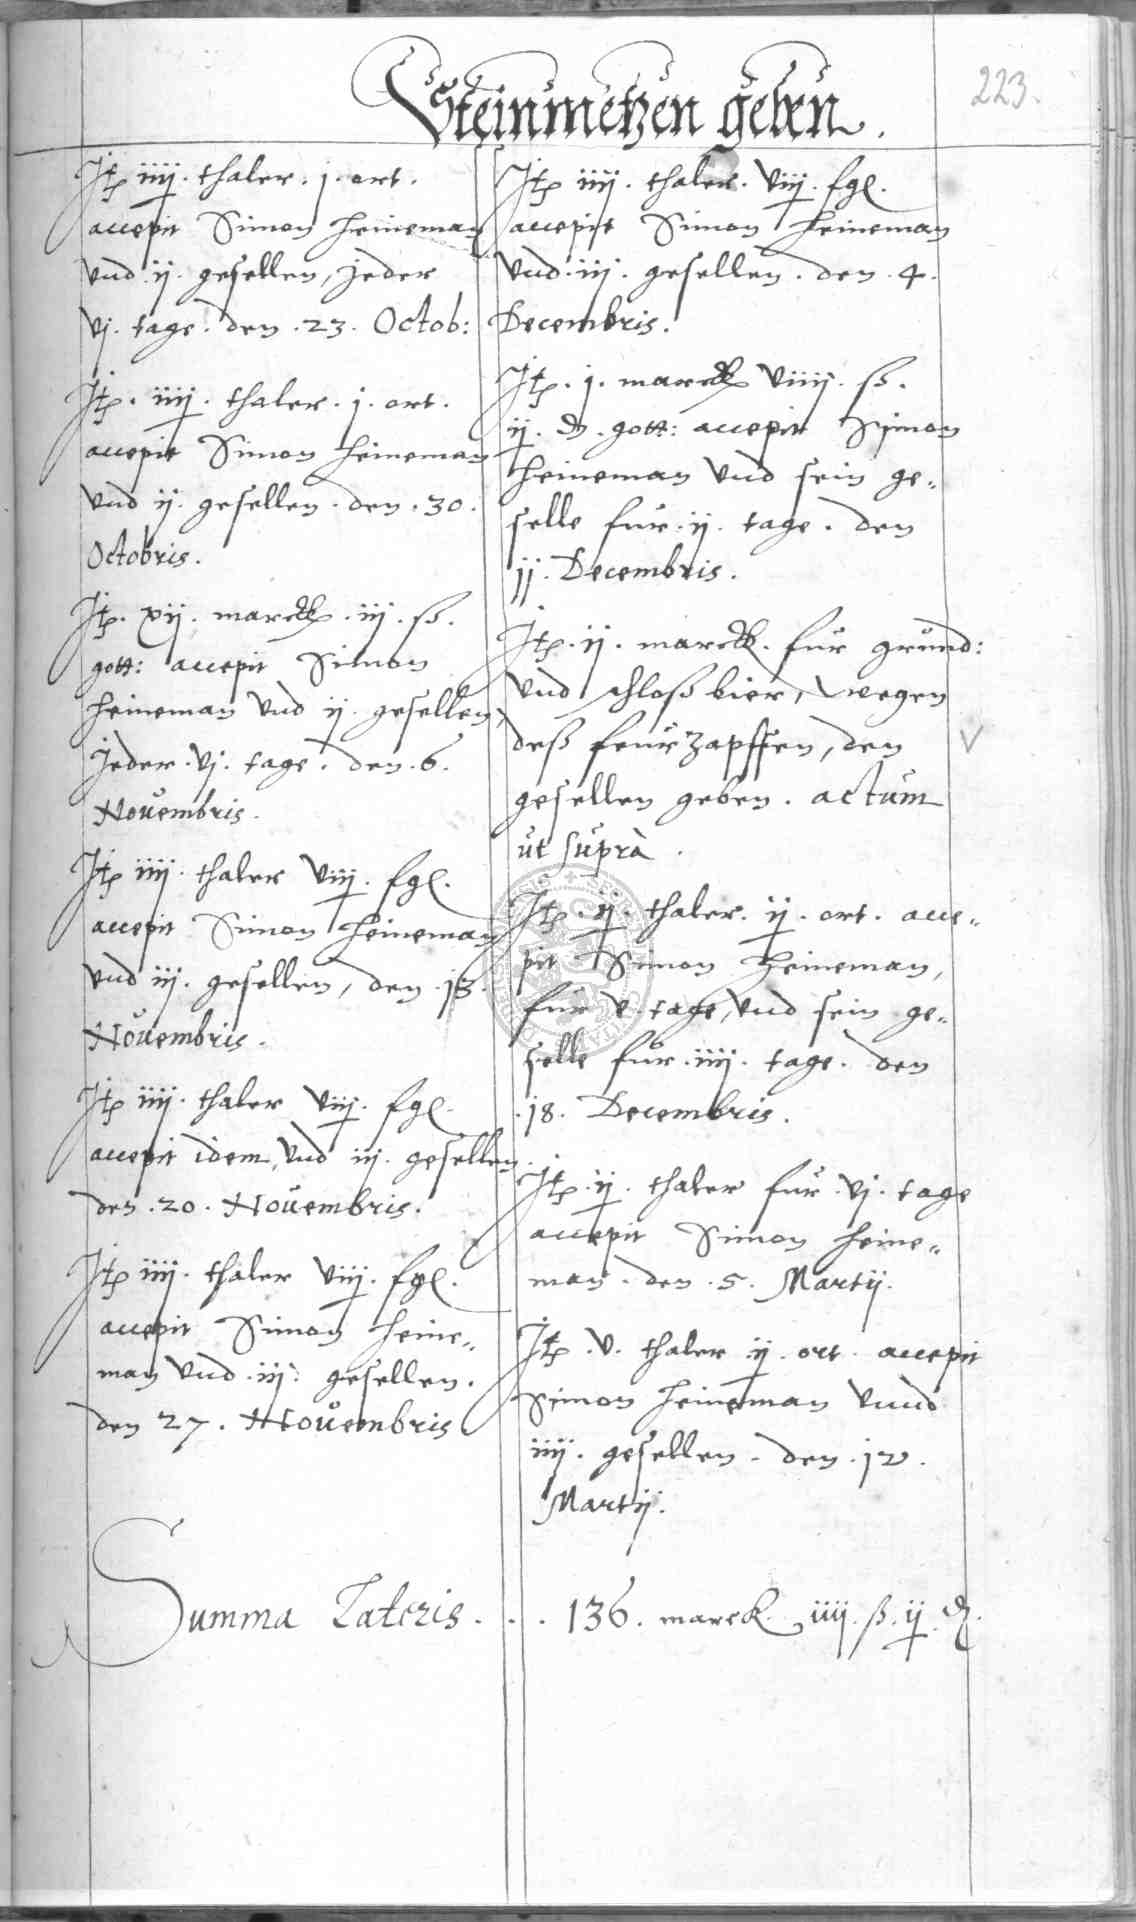 223.
Steinmetzen geben.
Itꝫ iiij. thaler. j. ort.
accepit Simon Heineman
vnd ij. gesellen, jeder
vj. tage. den .23. Octob:
Itꝫ. iiij. thaler. j. ort.
accepit Simon Heineman
vnd ij. gesellen. den .30.
Octobris.
Itꝫ. xij. marck .iij. ß.
gott: accepit Simon
Heineman vnd ij. gesellen,
jeder .vj. tage. den .6.
Novembris.
Itꝫ iiij. thaler viij. fgl.
accepit Simon Heineman
vnd iij. gesellen, den .13.
Novembris.
Itꝫ iiij. thaler viij. fgl.
accepit idem, vnd iij. gesellen
den .20. Novembris.
Itꝫ iiij. thaler viij. fgl.
accepit Simon Heine„
man vnd .iij. gesellen.
den 27. Novembris
Itꝫ iiij. thaler. viij. fgl.
accepit Simon Heineman
vnd .iij. gesellen. den .4.
Decembris.
Itꝫ. j. marck viiij. ß.
ij. ₰. gott: accepit Simon
Heineman vnd sein ge„
selle fur .ij. tage. den
jj. Decembris.
Itꝫ. ij. marck. fur grund:
vnd schloß bier, wegen
deß feurzapffen, den
gesellen geben. actum
ut supra.
Itꝫ. ij. thaler. ij. ort. acce„
pit Simon Heineman,
fur v. tage, vnd sein ge„
selle fur .iiij. tage. den
.18. Decembris.
Itꝫ. ij. thaler fur .vj. tage
accepit Simon Heine„
man. den .5. Martij.
Itꝫ .v. thaler ij. ort. accepit
Simon Heineman vnnd
iiij. gesellen. den .12.
Martij.
Summa Lateris . . . 136. marck iiij. ß. ij ₰.